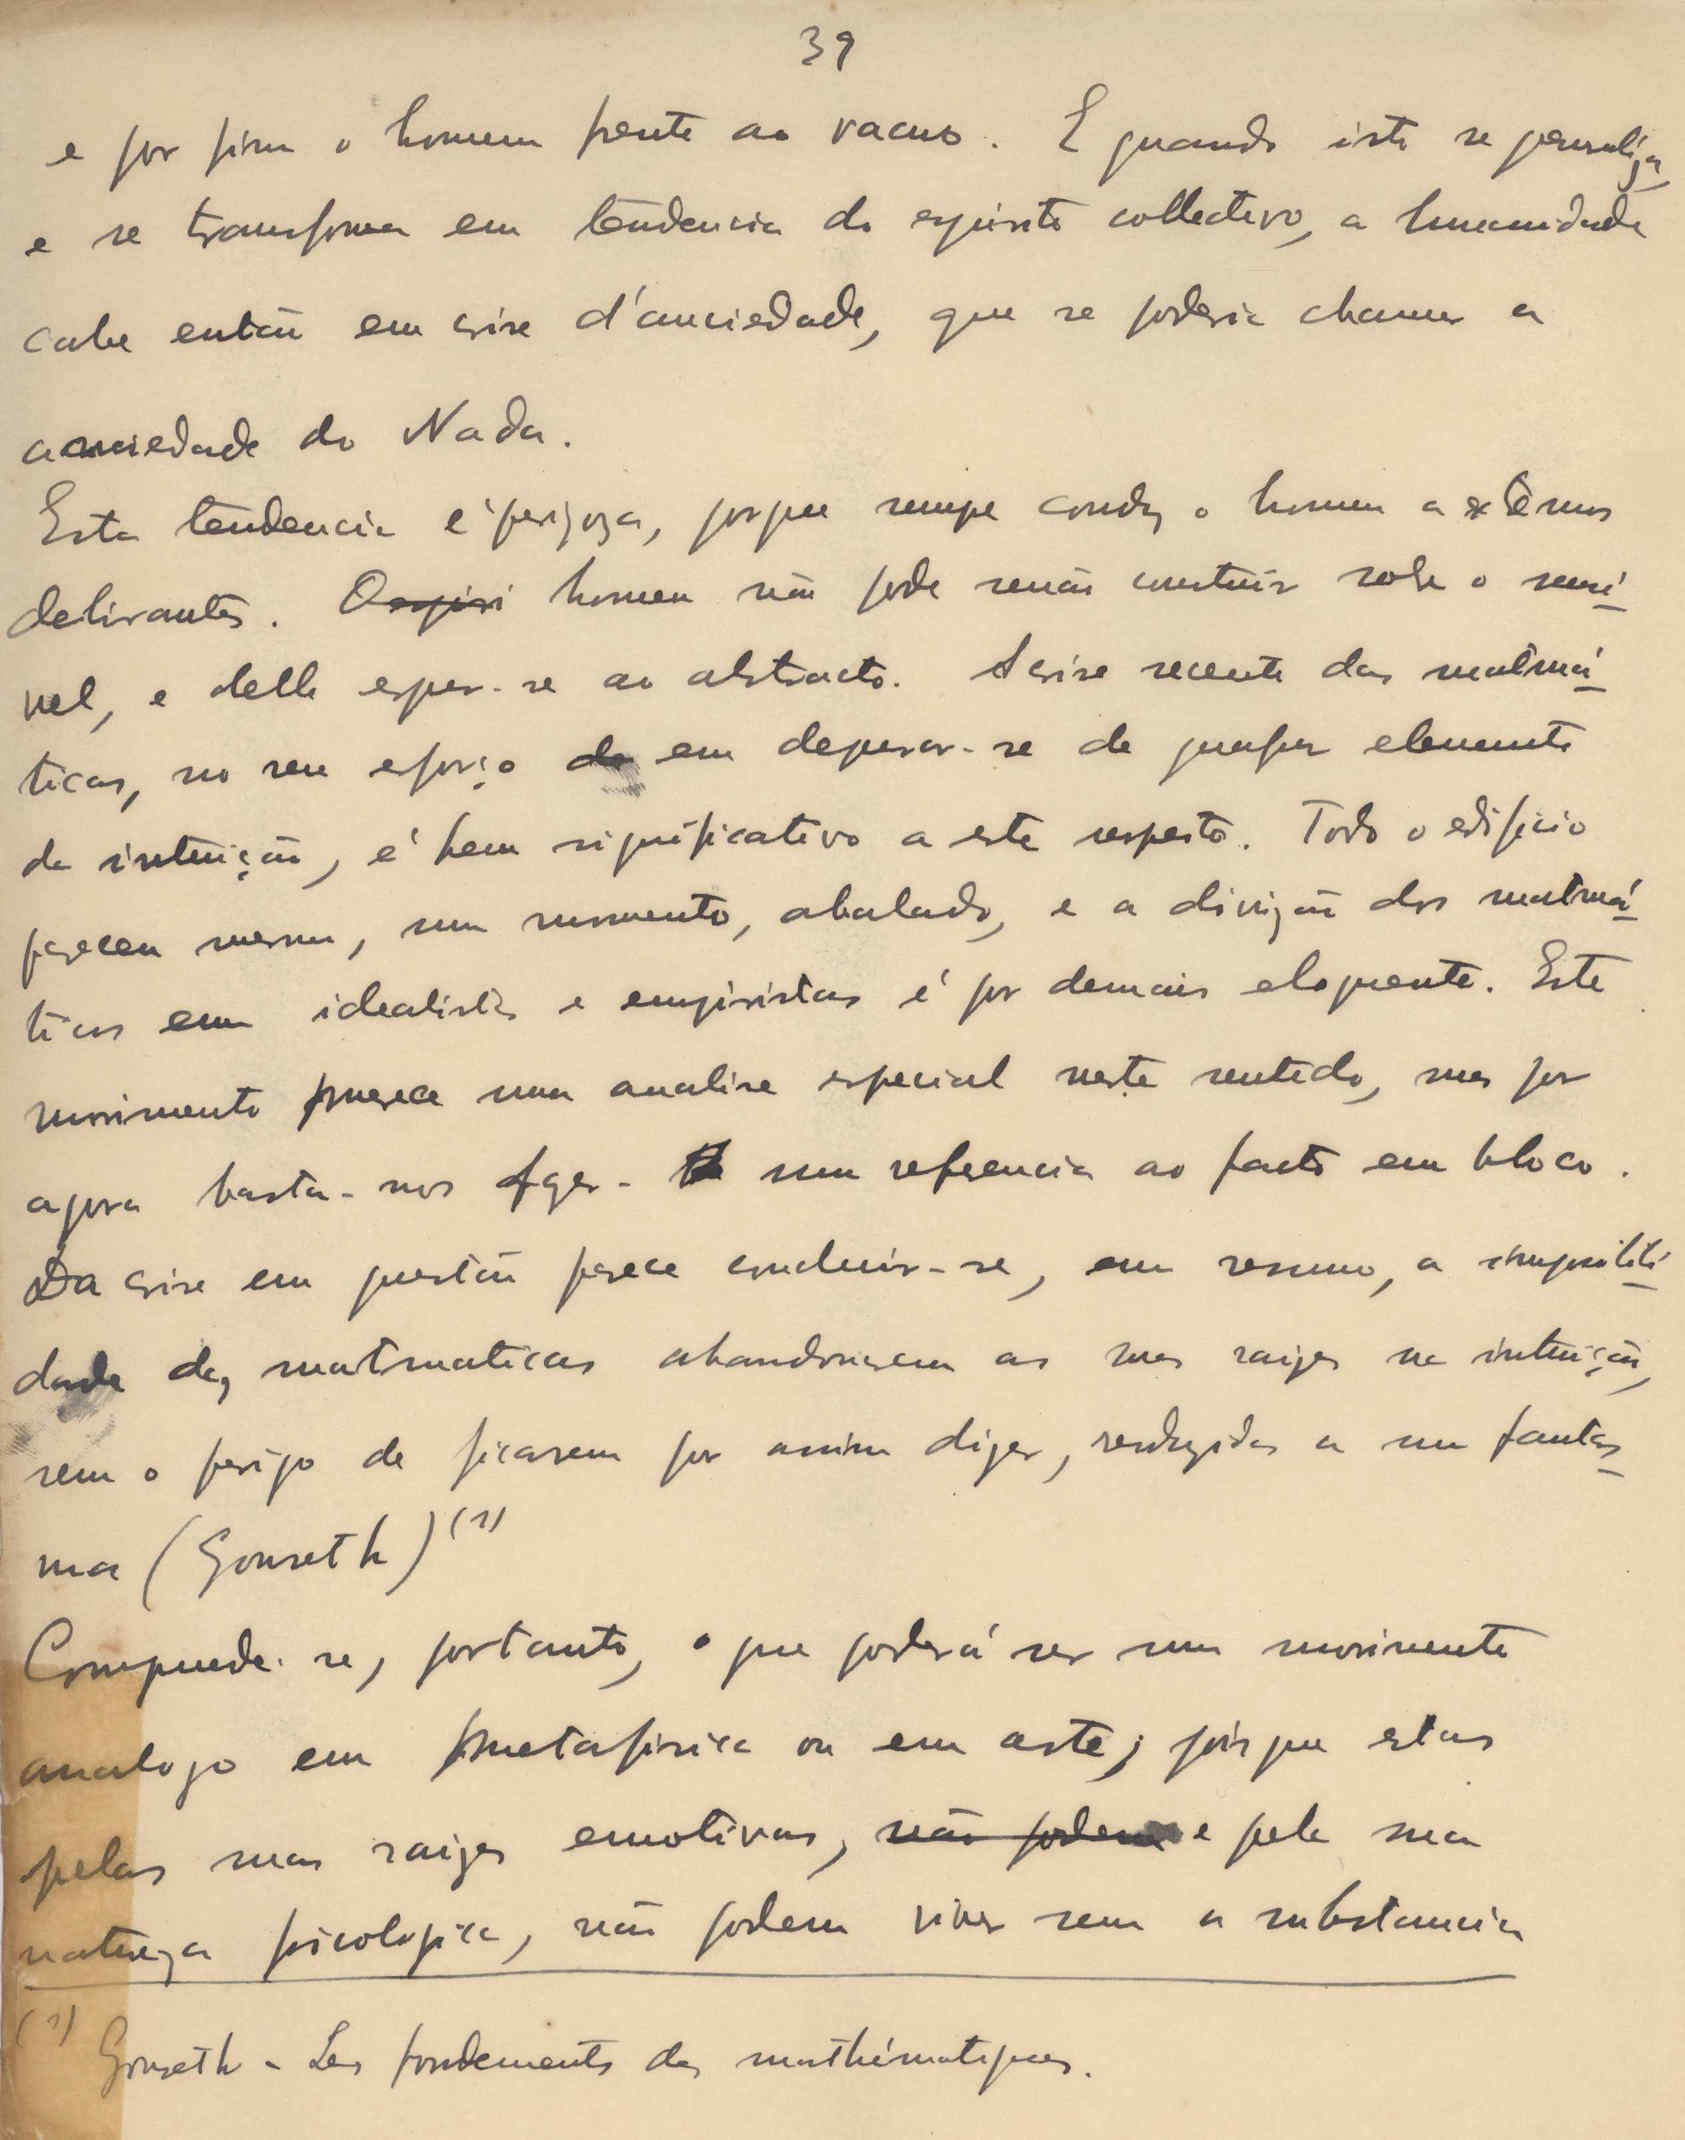 39
e por fim o homem frente ao vacuo. E quando isto se generaliza
e se transforma em tendencia do espirito collectivo, a humanidade
cahe então em crise d'anciedade, que se poderia chamar a
anciedade do Nada.
Esta tendencia é perigoza, porque sempre conduz o homem a extêmos
delirantes. O homem não pode senão construir sobre o sensi-
vel, e delle erguer-se ao abstracto. A crise recente das matmá-
ticas, no seu esforço em depurar-se de qualquer elemento
de intuição, é bem significativo a este respeito. Todo o edificio
pareceu mesmo, um momento, abalado, e a divizão dos matmá-
ticos em idealistas e empiristas é por demais eloquente. Este
movimento merece uma analise especial neste sentido, mas por
agora basta-nos fazer uma referencia ao facto em bloco.
Da crise em questão parece concluir-se, em resumo, a impossibili-
dade das matmaticas abandonarem as suas raizes na intuição,
sem o perigo de ficarem por assim dizer, reduzidas a um fantas-
ma (Gonseth) (1)
Comprende-se, portanto, o que poderá ser um movimento
analogo em metafisica ou em arte; pois que estas
pelas suas raizes emotivas, e pela sua
natureza psicologica, não podem viver sem a substancia
(1) Gonseth - Les fondements des mathématiques.